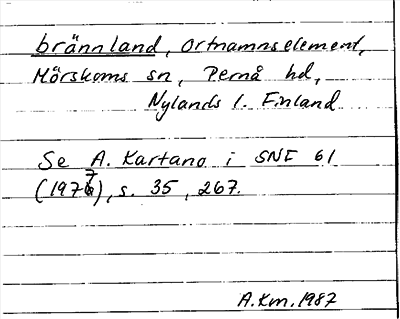 brännland, ortnamnselement,
Mörskoms sn, Pernå hd,
Nylands l. Finland
Se A. Kartano i SNE 61
(1977), s. 35, 267.
A.Km.1987